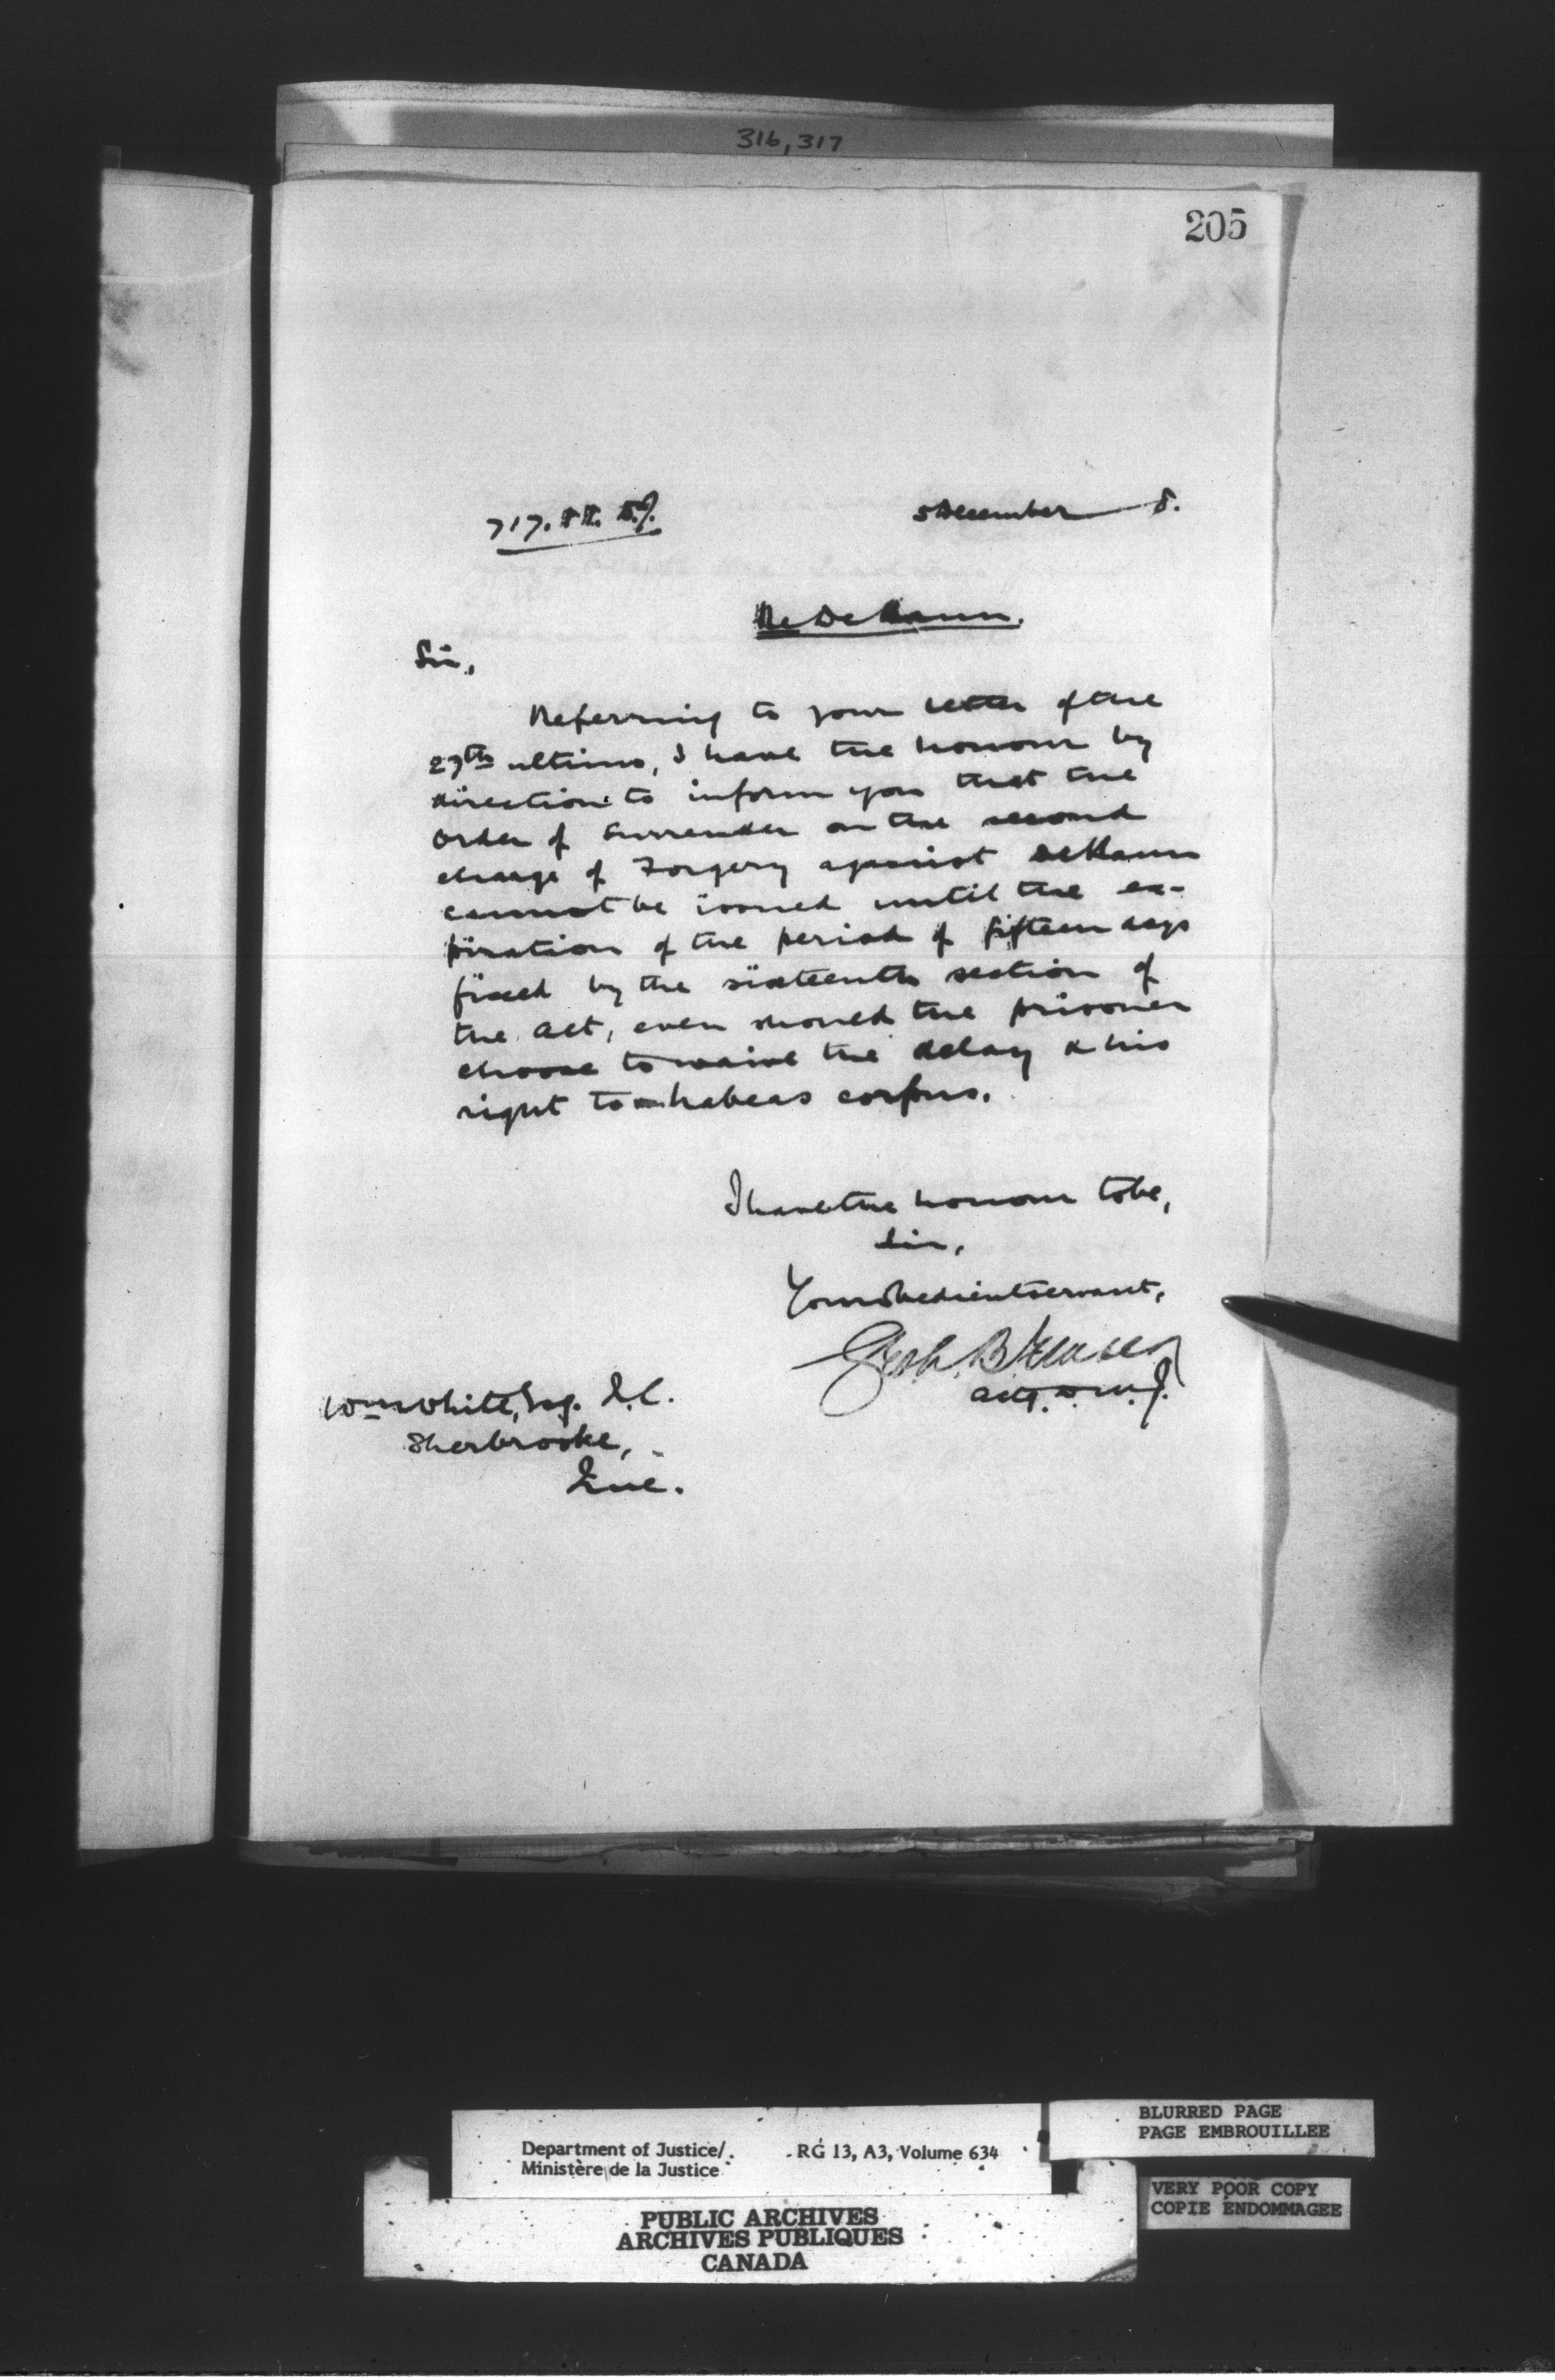 316, 317
205
717.88.
5 December 8.
Re DeKaun.
Sir,
Referring to your letter of the
27th ultimo, I have the honour by
direction to inform you that the
order of surrender on the second
charge of Forgery against DeKaun
cannot be issued until the ex-
piration of the period of fifteen days
fixed by the sixteenth section of
the Act, even should the prisoner
choose to waive the delay & his
right to habeas corpus.
I have the honour to be,
Sir,
Your obedient servant,
Actg. D.M.J.
Wm White, Esq. Q.C.
Sherbrooke,
Que.
BLURRED PAGE
PAGE EMBROUILLEE
Department of Justice/ RG 13, A3, Volume 634
Ministère de la Justice
VERY POOR COPY
COPIE ENDOMMAGEE
PUBLIC ARCHIVES
ARCHIVES PUBLIQUES
CANADA